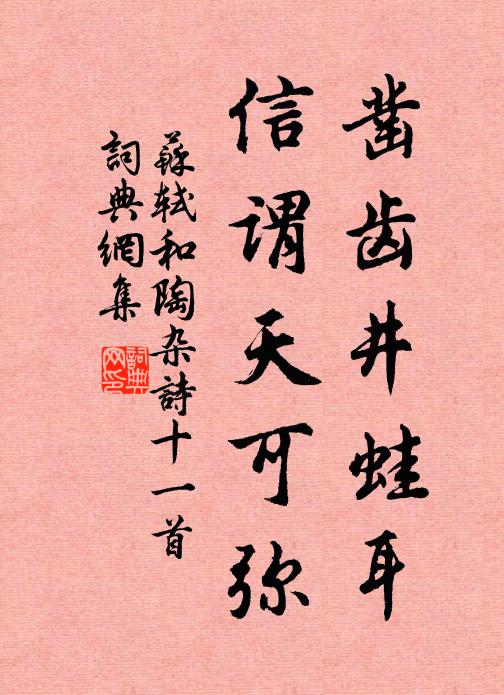 凿齿井蛙耳
信谓天可弥
蘇軾和陶杂詩十一首
詞典網集
詞典網印